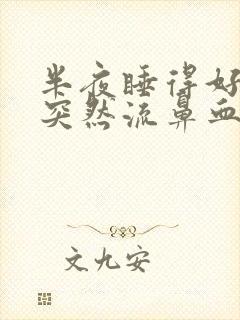 半夜睡得好
突然流鼻血
文九安